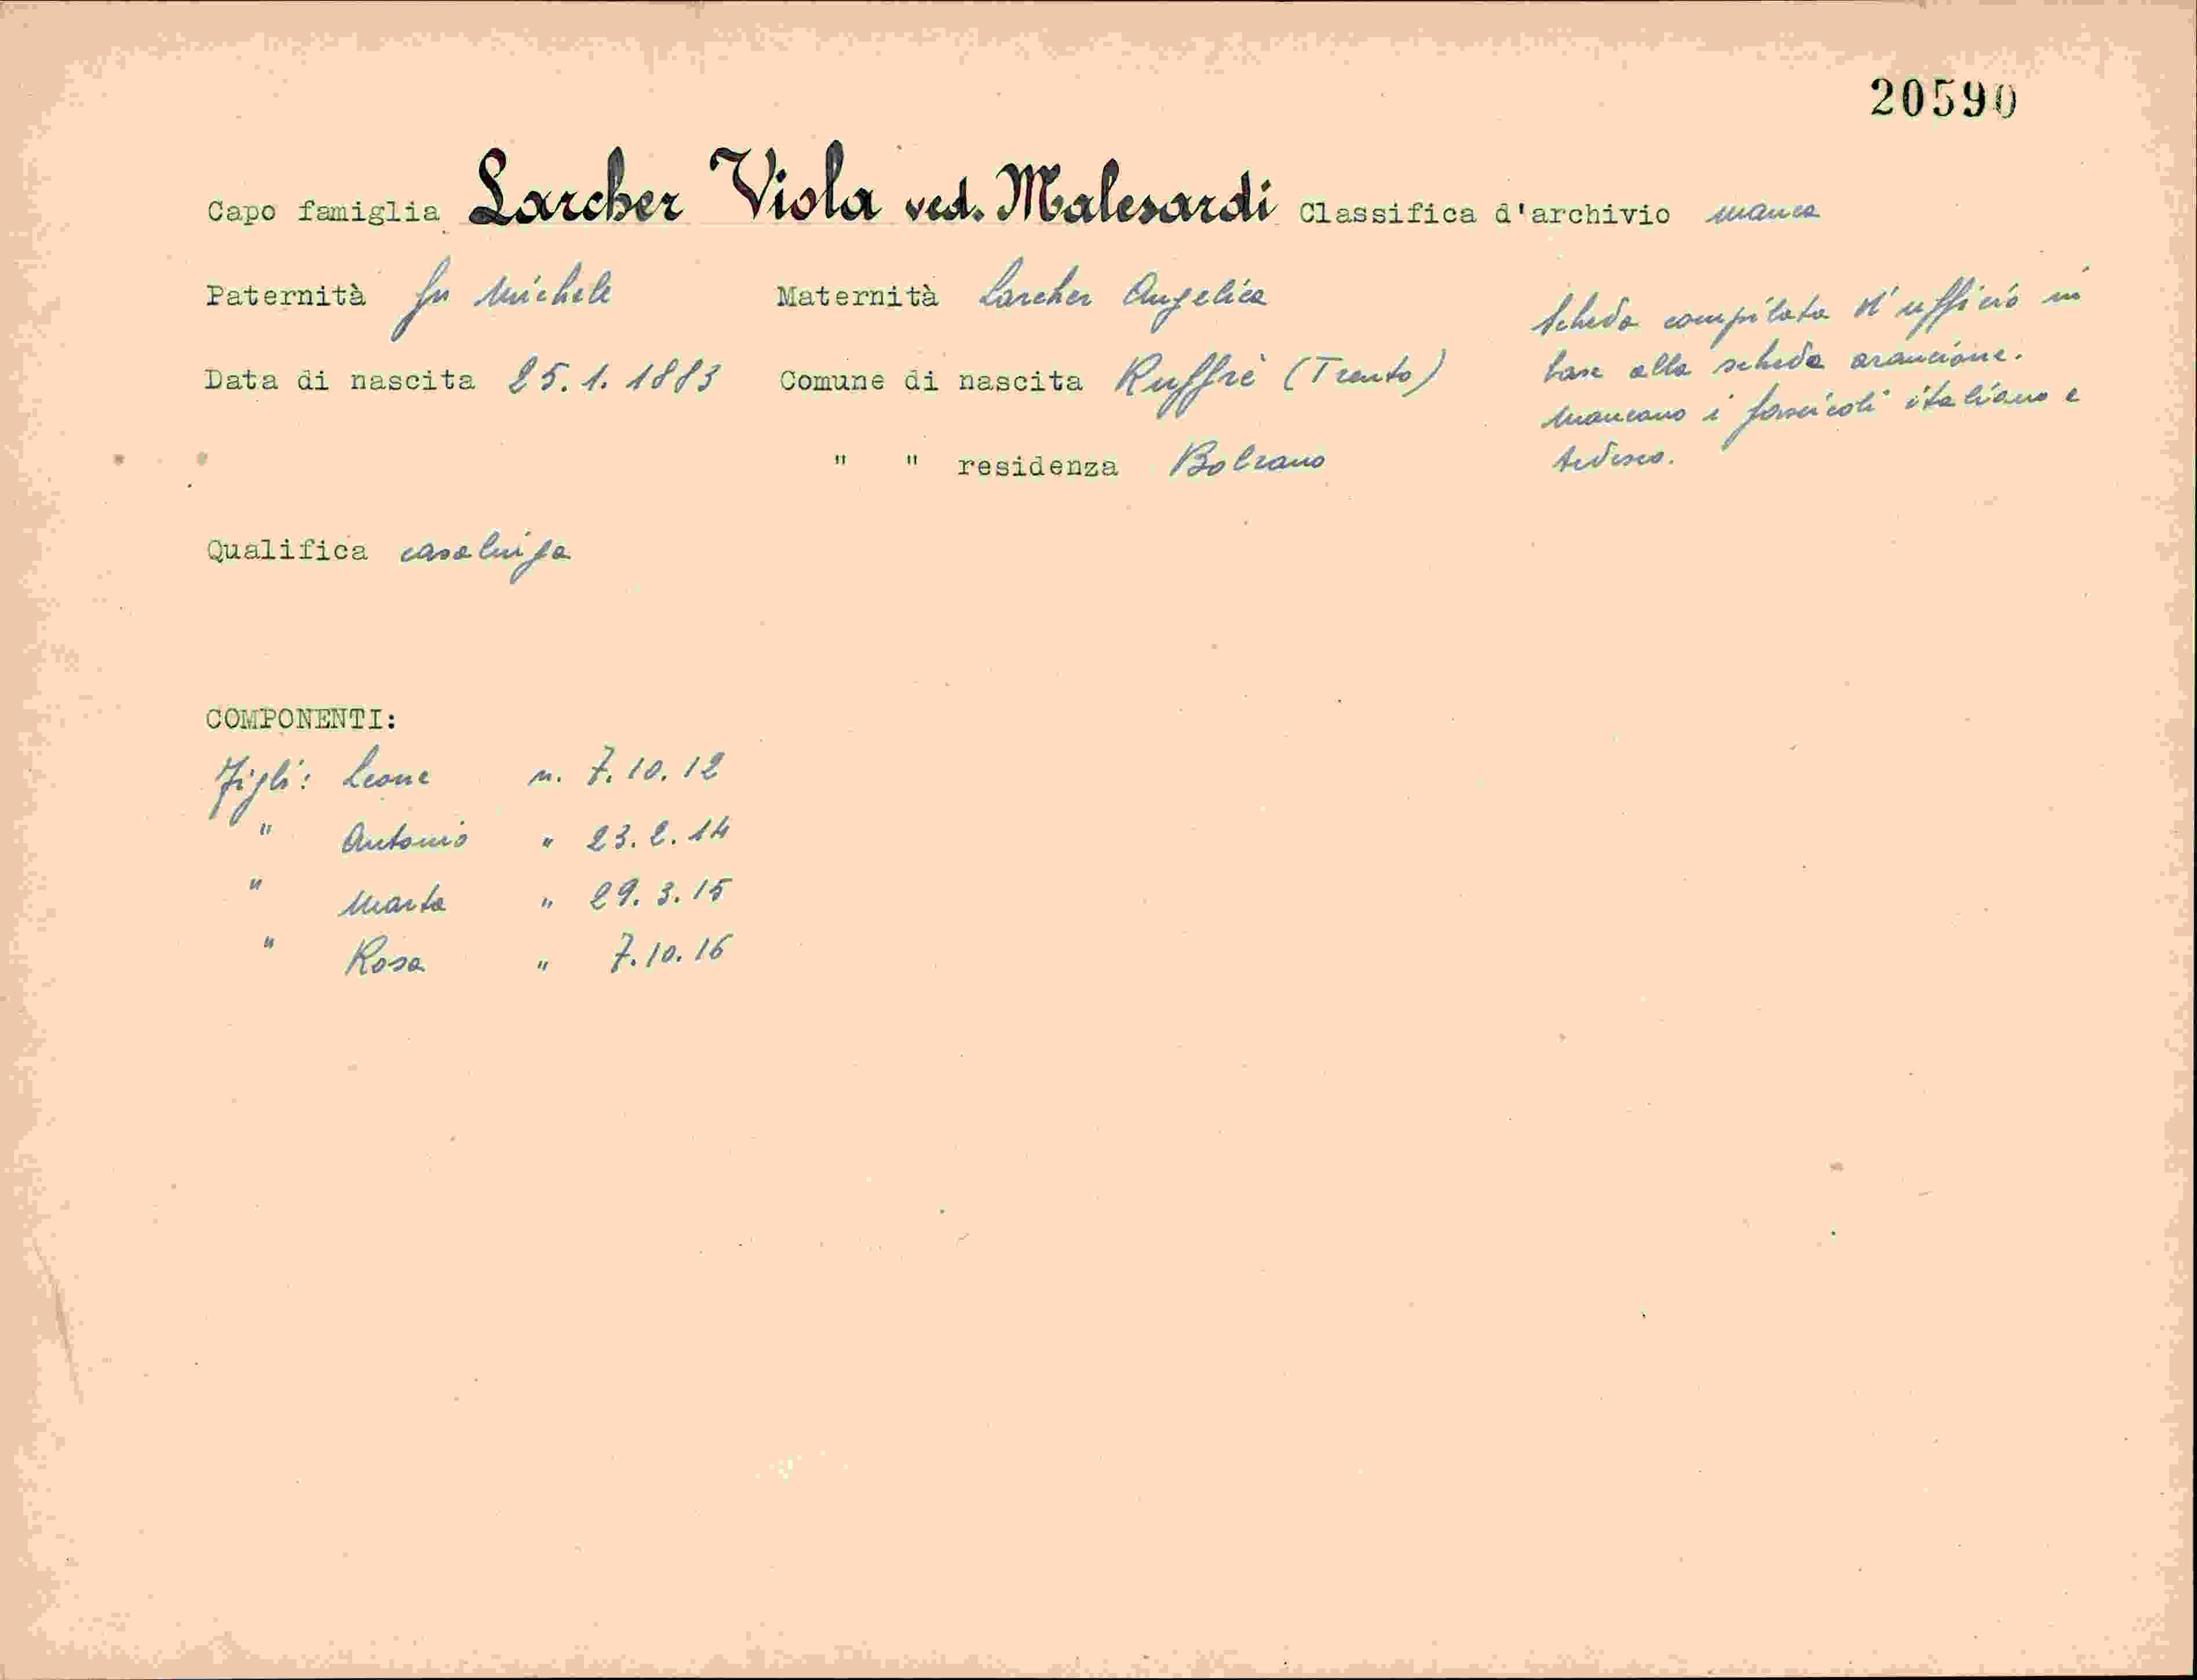 20590
Capo famiglia Larcher Viola ved. Malesardi Classifica d'archivio manca
Paternità fu Michele Maternità Larcher Angelica
Data di nascita 25.1.1883 Comune di nascita Ruffrè (Trento)
" " residenza Bolzano
Scheda compilata d'ufficio in
base alla scheda arancione.
Mancano i fascicoli italiano e
tedesco.
Qualifica casalinga
COMPONENTI:
Figli: Leone n. 7.10.12
" Antonio " 23.2.14
" Marta " 29.3.15
" Rosa " 7.10.16